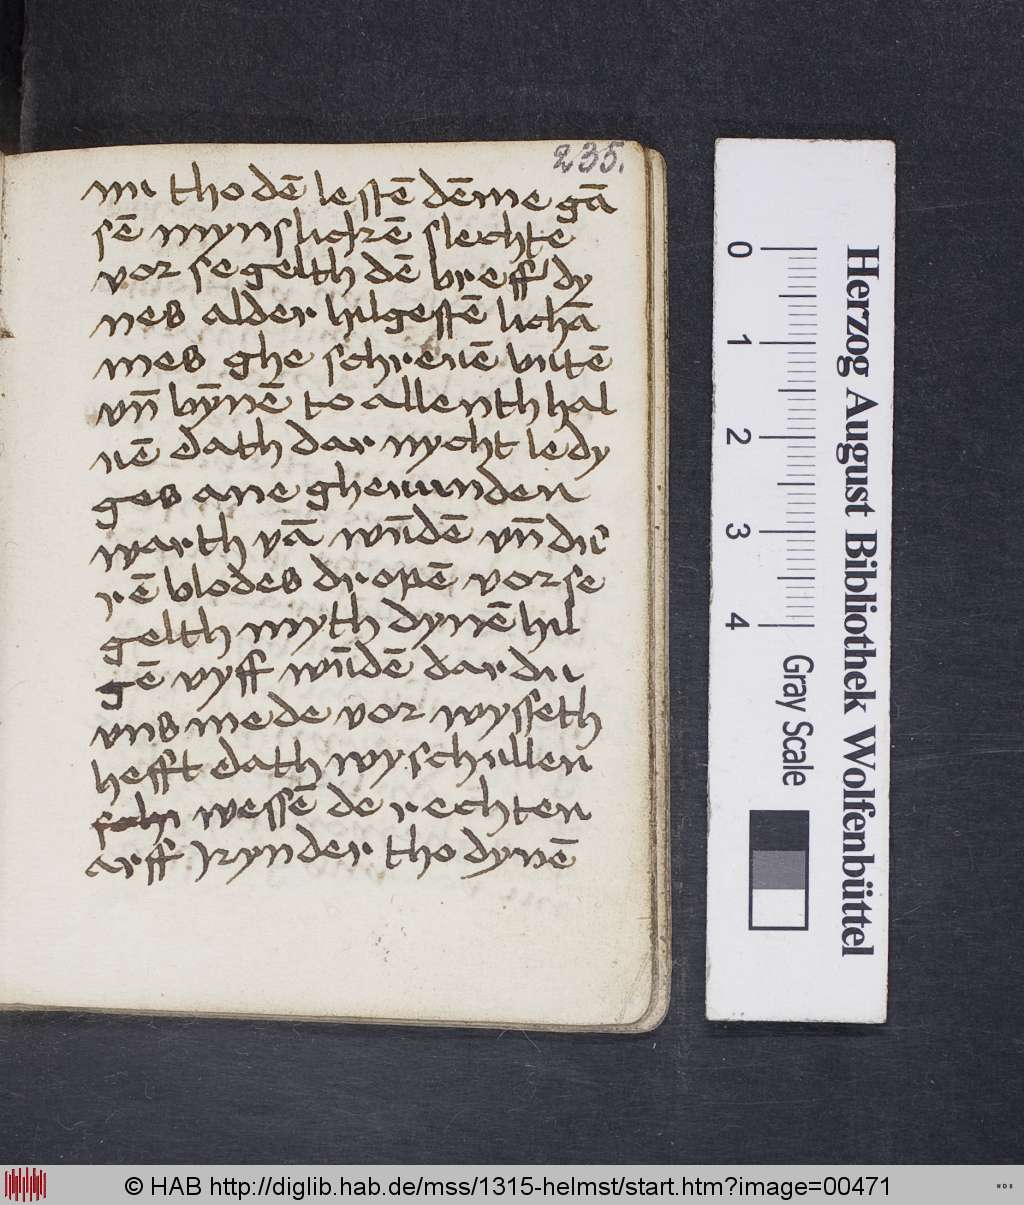 235.
nu tho dē lestē dēme gā
sē mynslickē slechte
vor segelth dē breff dy
nes alder hilgestē lichā
mes ghe schreuē butē
vn̄ bȳnē to allenthhal
uē dath dar nycht ledy
ges ane ghewunden
warth vā wn̄dē vn̄ du
rē blodes dropē vorse
gelth myth dynē hil
gē vyff wn̄dē dar du
vns mede vor wysseth
hefft dath wy schullen
wessē de rechten
arff kynder tho dynē
0
1
2
3
4
Gray Scale
Herzog August Bibliothek Wolfenbüttel
© HAB http://diglib.hab.de/mss/1315-helmst/start.htm?image=00471